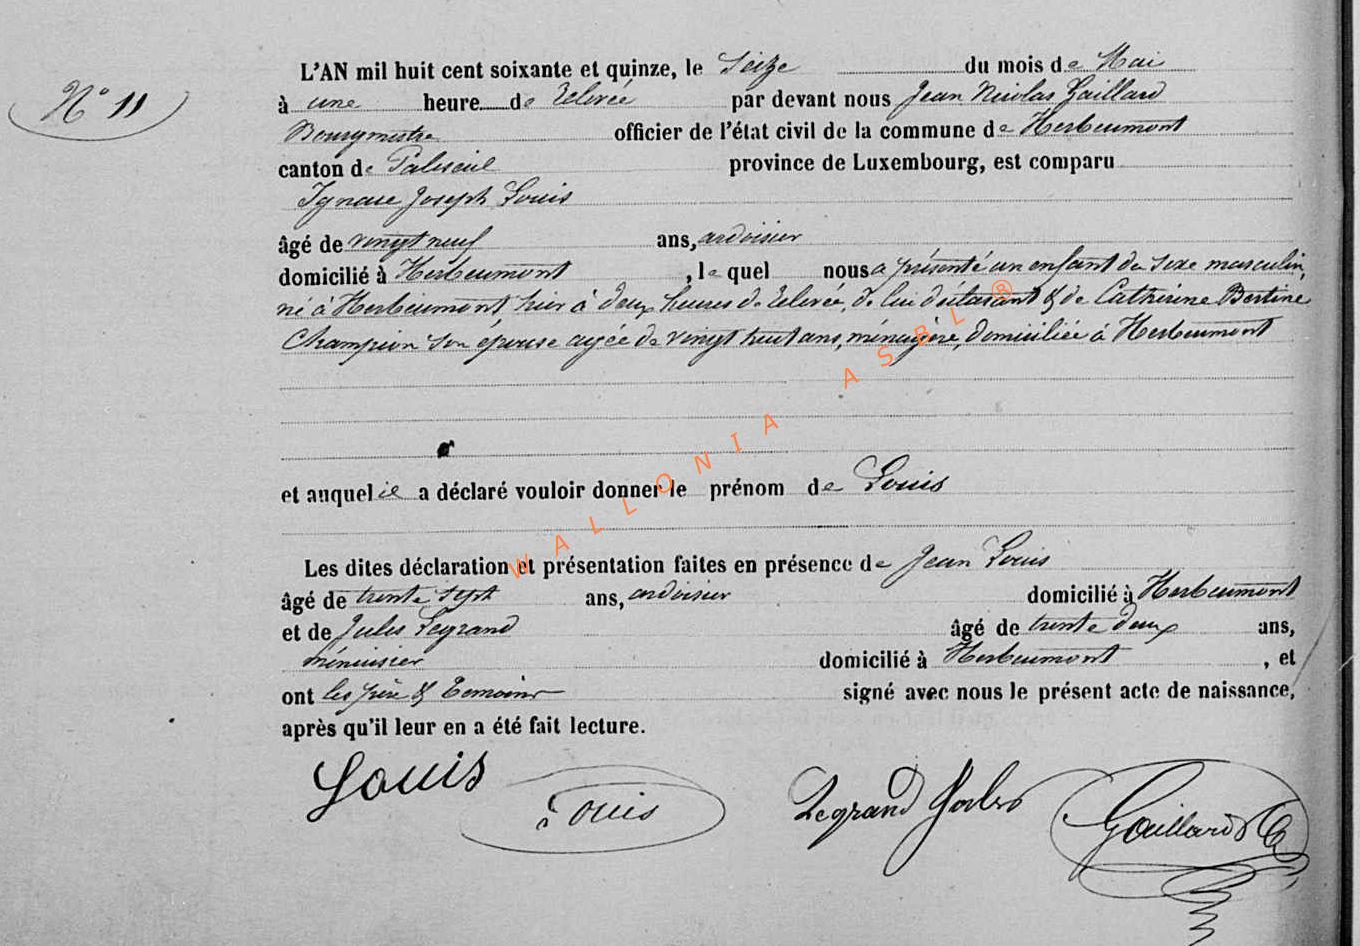 N° 11
L'AN mil huit cent soixante et quinze, le Seize du mois de Mai
à une heure de relevée par devant nous Jean Nicolas Gaillard
Bourgmestre officier de l'état civil de la commune de Herbeumont
canton de Paliseul province de Luxembourg, est comparu
Ignace Joseph Louis
âgé de vingt neuf ans, ardoisier
domicilié à Herbeumont, le quel nous a présenté un enfant du sexe masculin,
né à Herbeumont hier à deux heures de relevée, de lui déclarant & de Catherine Bertine
Champion son épouse agée de vingt huit ans, ménagère, domiciliée à Herbeumont
et auquel il a déclaré vouloir donner le prénom de Louis
Les dites déclaration et présentation faites en présence de Jean Louis
âgé de trente sept ans, ardoisier domicilié à Herbeumont
et de Jules Legrand âgé de trente deux ans,
menuisier domicilié à Herbeumont, et
ont les père & temoins signé avec nous le présent acte de naissance,
après qu'il leur en a été fait lecture.
Louis Louis Legrand Jules Gaillard
WALLONIA ASBL ®